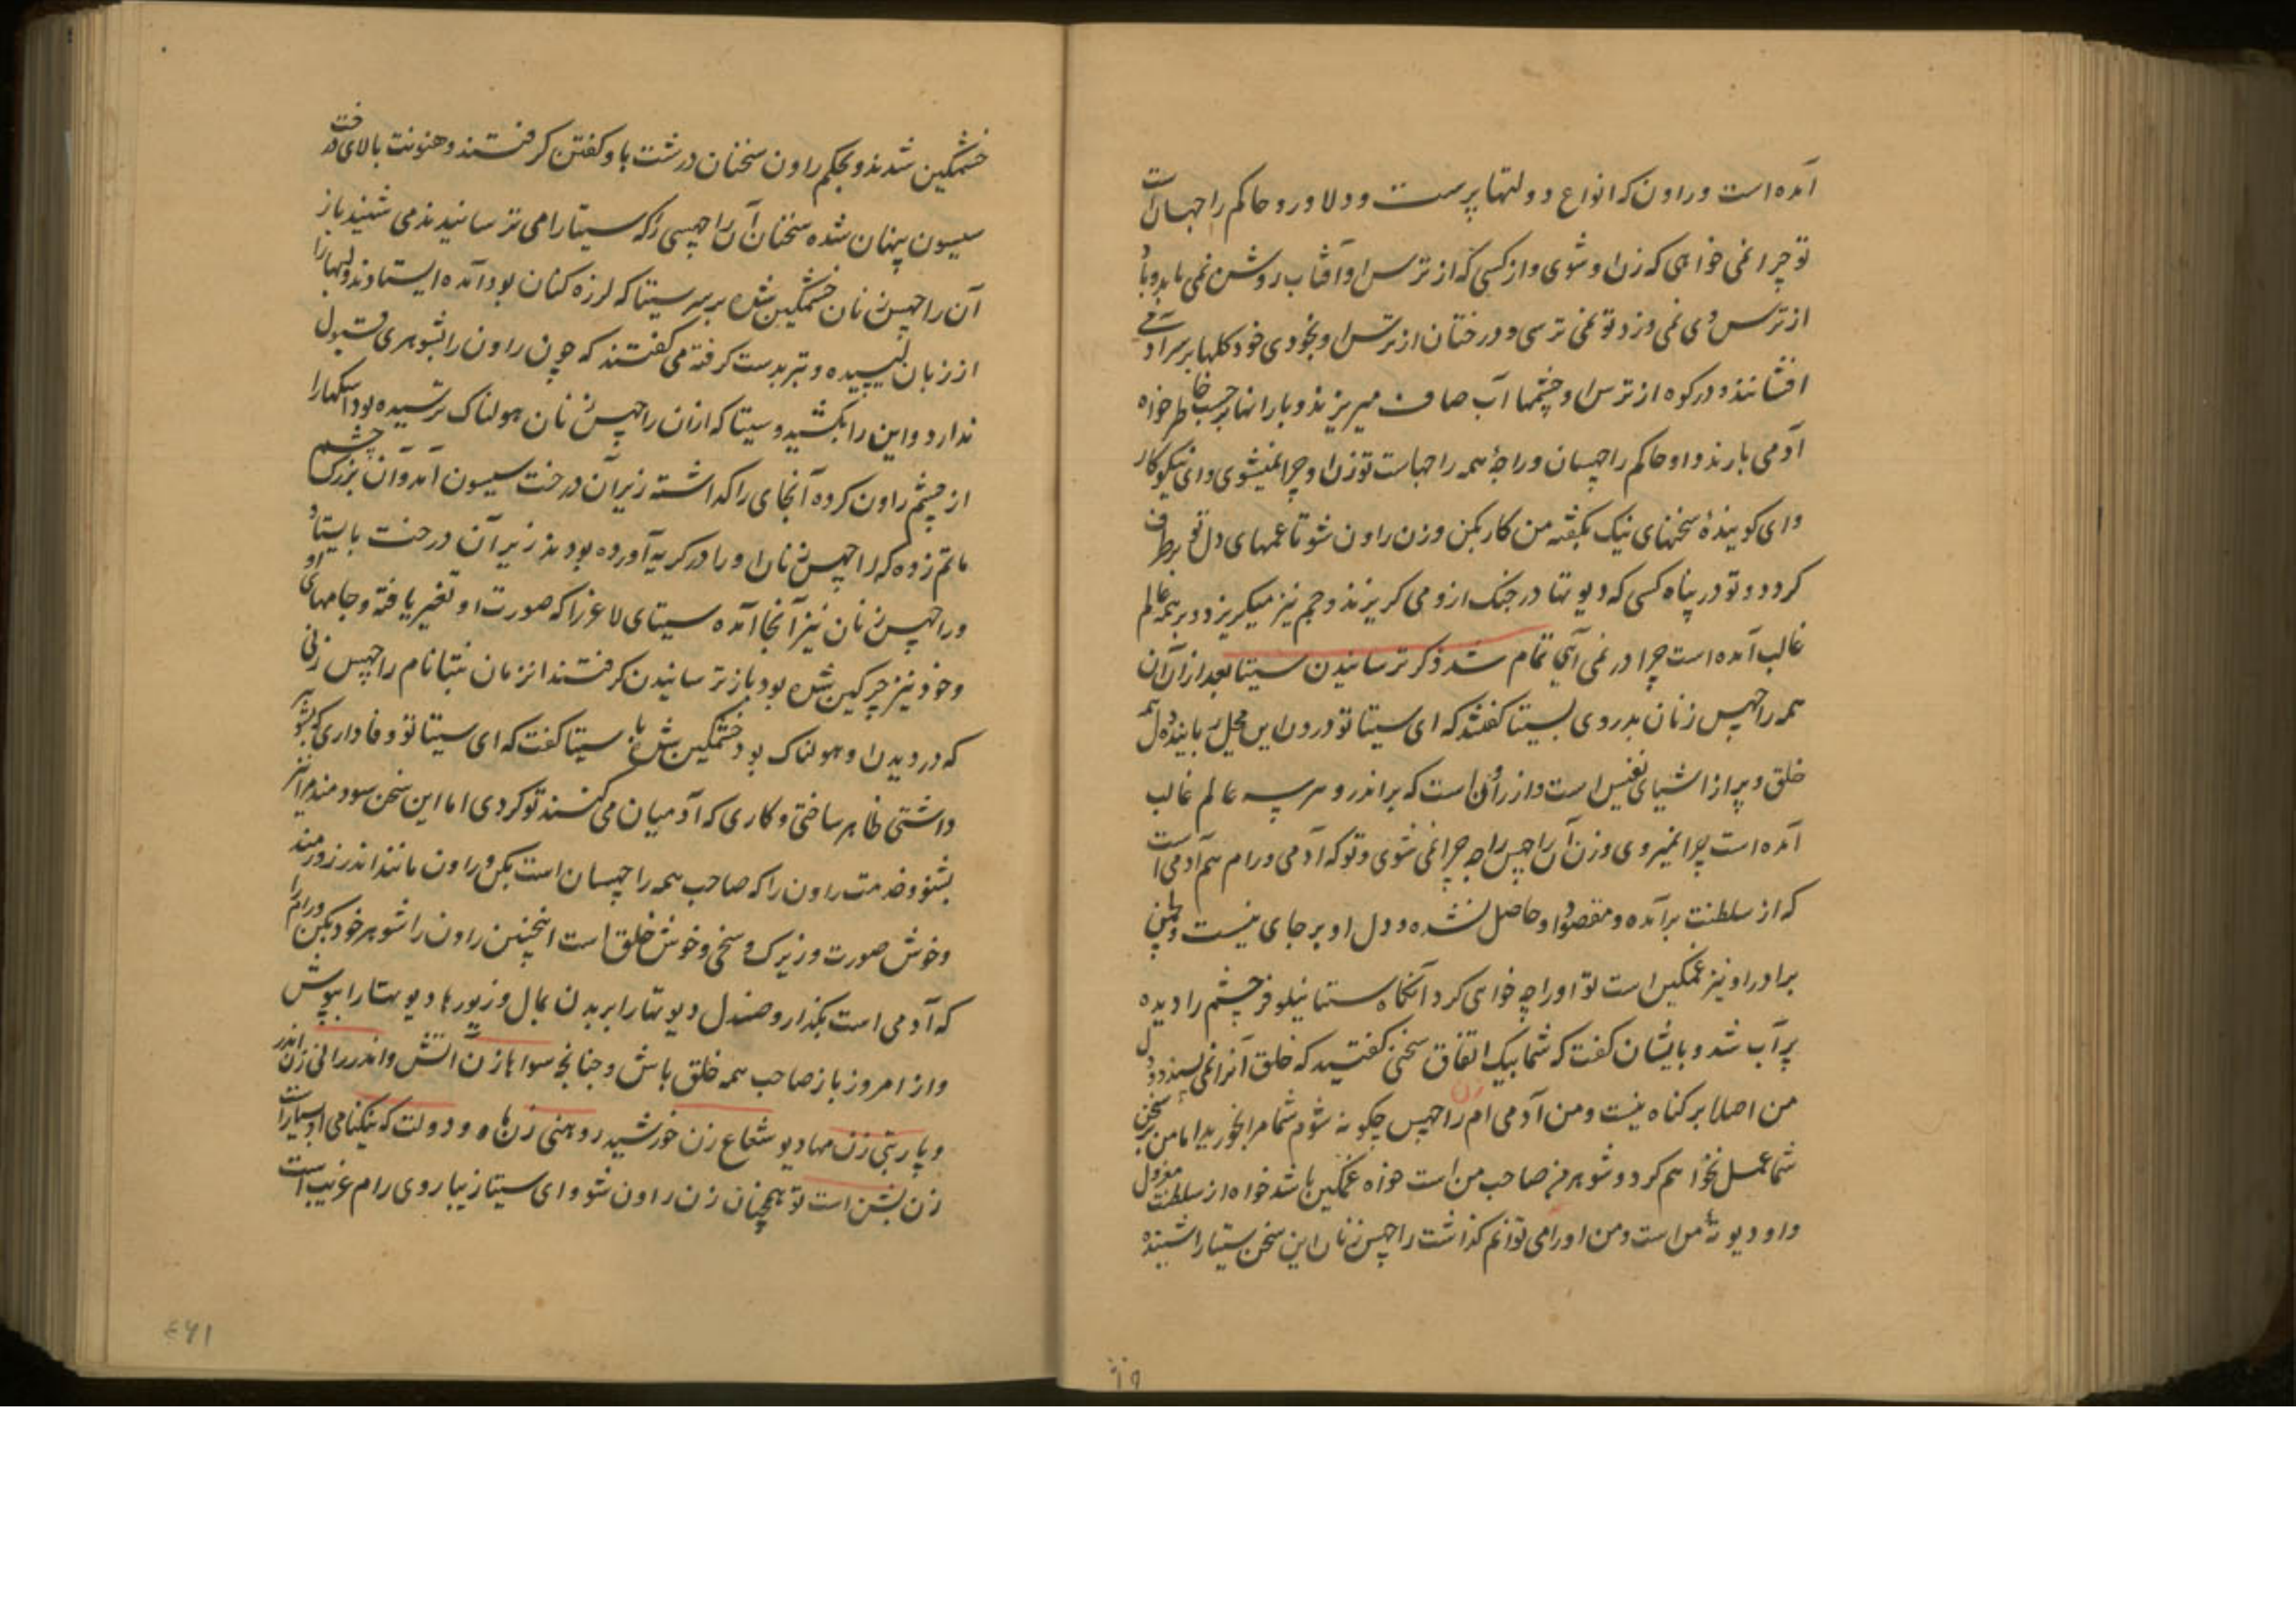 آمده است و راون که انواع دولتها پرست و دلاور و حاکم راجهسان است
تو چرا نمی خواهی که زن او شوی و از کسی که از ترس او آفتاب روشن نمی تابد و باد
از ترس وی نمی وزد تو نمی ترسی و درختان از ترس او بخودی خود گلها بر سر آدمی
افشانند و در کوه از ترس او چشمها آب صاف میریزند و بارانها بر حسب خاطر خواه
آدمی بارند و او حاکم راجهسان و راجهٔ همه راجهاست تو زن او چرا نمیشوی و ای نیکوکار
و ای گویندهٔ سخنهای نیک بگفتهٔ من کار بکن و زن راون شو تا غمهای دل تو برطرف
گردد و تو در پناه کسی که دیوتها در جنگ ازو می گریزند و جم نیز میگریزد و بر همه عالم
غالب آمده است چرا در نمی آیی تمام شد ذکر ترسانیدن سیتا بعد از آن آن
همه راجهس زنان بدروی بسیتا گفتند که ای سیتا تو درون این محل رباینده دل همه
خلق و پر از اشیای نفیس است و از راون است که بر اندر و هر سه عالم غالب
آمده است چرا نمیروی و زن آن راجهس راجه چرا نمی شوی و تو که آدمی و رام هم آدمی است
که از سلطنت برآمده و مقصود او حاصل نشده و دل او بر جای نیست و لچمن
برادر او نیز غمگین است تو او را چه خواهی کرد آنگاه ستیا نیلوفر چشم را دیده
پر آب شد و بایشان گفت که شما بیک اتفاق سخنی گفتید که خلق آنرا نمی پسندد و دل
من اصلا بر گناه نیست و من آدمی ام زن راجهس چگونه شوم شما مرا بخورید اما من بر سخن
شما عمل نخواهم کرد و شوهر من صاحب من است خواه غمگین باشد خواه از سلطنت معزول
و او دیوتهٔ من است و من او را می توانم گذاشت راجهس زنان این سخن سیتا را شنیده
۱۹
خشمگین شدند و بحکم راون سخنان درشت باو گفتن گرفتند و هنونت بالای درخت
سیسون پنهان شده سخنان آن راجهسی را که سیتا را می ترسانیدند می شنید باز
آن راجهس زنان خشمگین شده بر سر سیتا که لرزه کنان بود آمده ایستادند و لبها را
از زبان لیسیده و تبر بدست گرفته می گفتند که چون راون را بشوهری قبول
ندارد و این را بکشید و سیتا که ازان راجهس زنان هولناک ترسیده بود اشکها را
از چشم راون کرده آنجای را گذاشته زیر آن درخت سیسون آمد و آن بزرگ چشم
ماتم زده که راجهس زنان او را در گریه آورده بودند زیر آن درخت بایستاد
و راجهس زنان نیز آنجا آمده سیتای لاغر را که صورت او تغیر یافته و جامهای او
و خود نیز چرکین شده بود باز ترسانیدن گرفتند انزمان نبتا نام راجهس زنی
که در دیدن او هولناک بود خشمگین شده با سیتا گفت که ای سیتا تو وفاداری که بشوهر
داشتی ظاهر ساختی و کاری که آدمیان می کنند تو کردی اما این سخن سودمند مرا نیز
بشنو و خدمت راون را که صاحب همه راجهسان است بکن و راون مانند اندر زورمند
و خوش صورت و زیرک و سخی و خوش خلق است اینچنین راون را شوهر خود بکن و رام را
که آدمی است بگذار و صندل دیوتها را بر بدن بمال و زیورها دیوتها را بپوش
و از امروز باز صاحب همه خلق باش و چنانچه سواها زن آتش و اندررانی زن اندر
و پاربتی زن مهادیو شعاع زن خورشید روهنی زن ماه و دولت که نیکنامی او بسیار است
زن بشن است تو همچنان زن راون شو و ای سیتا زیبا روی رام غریب است